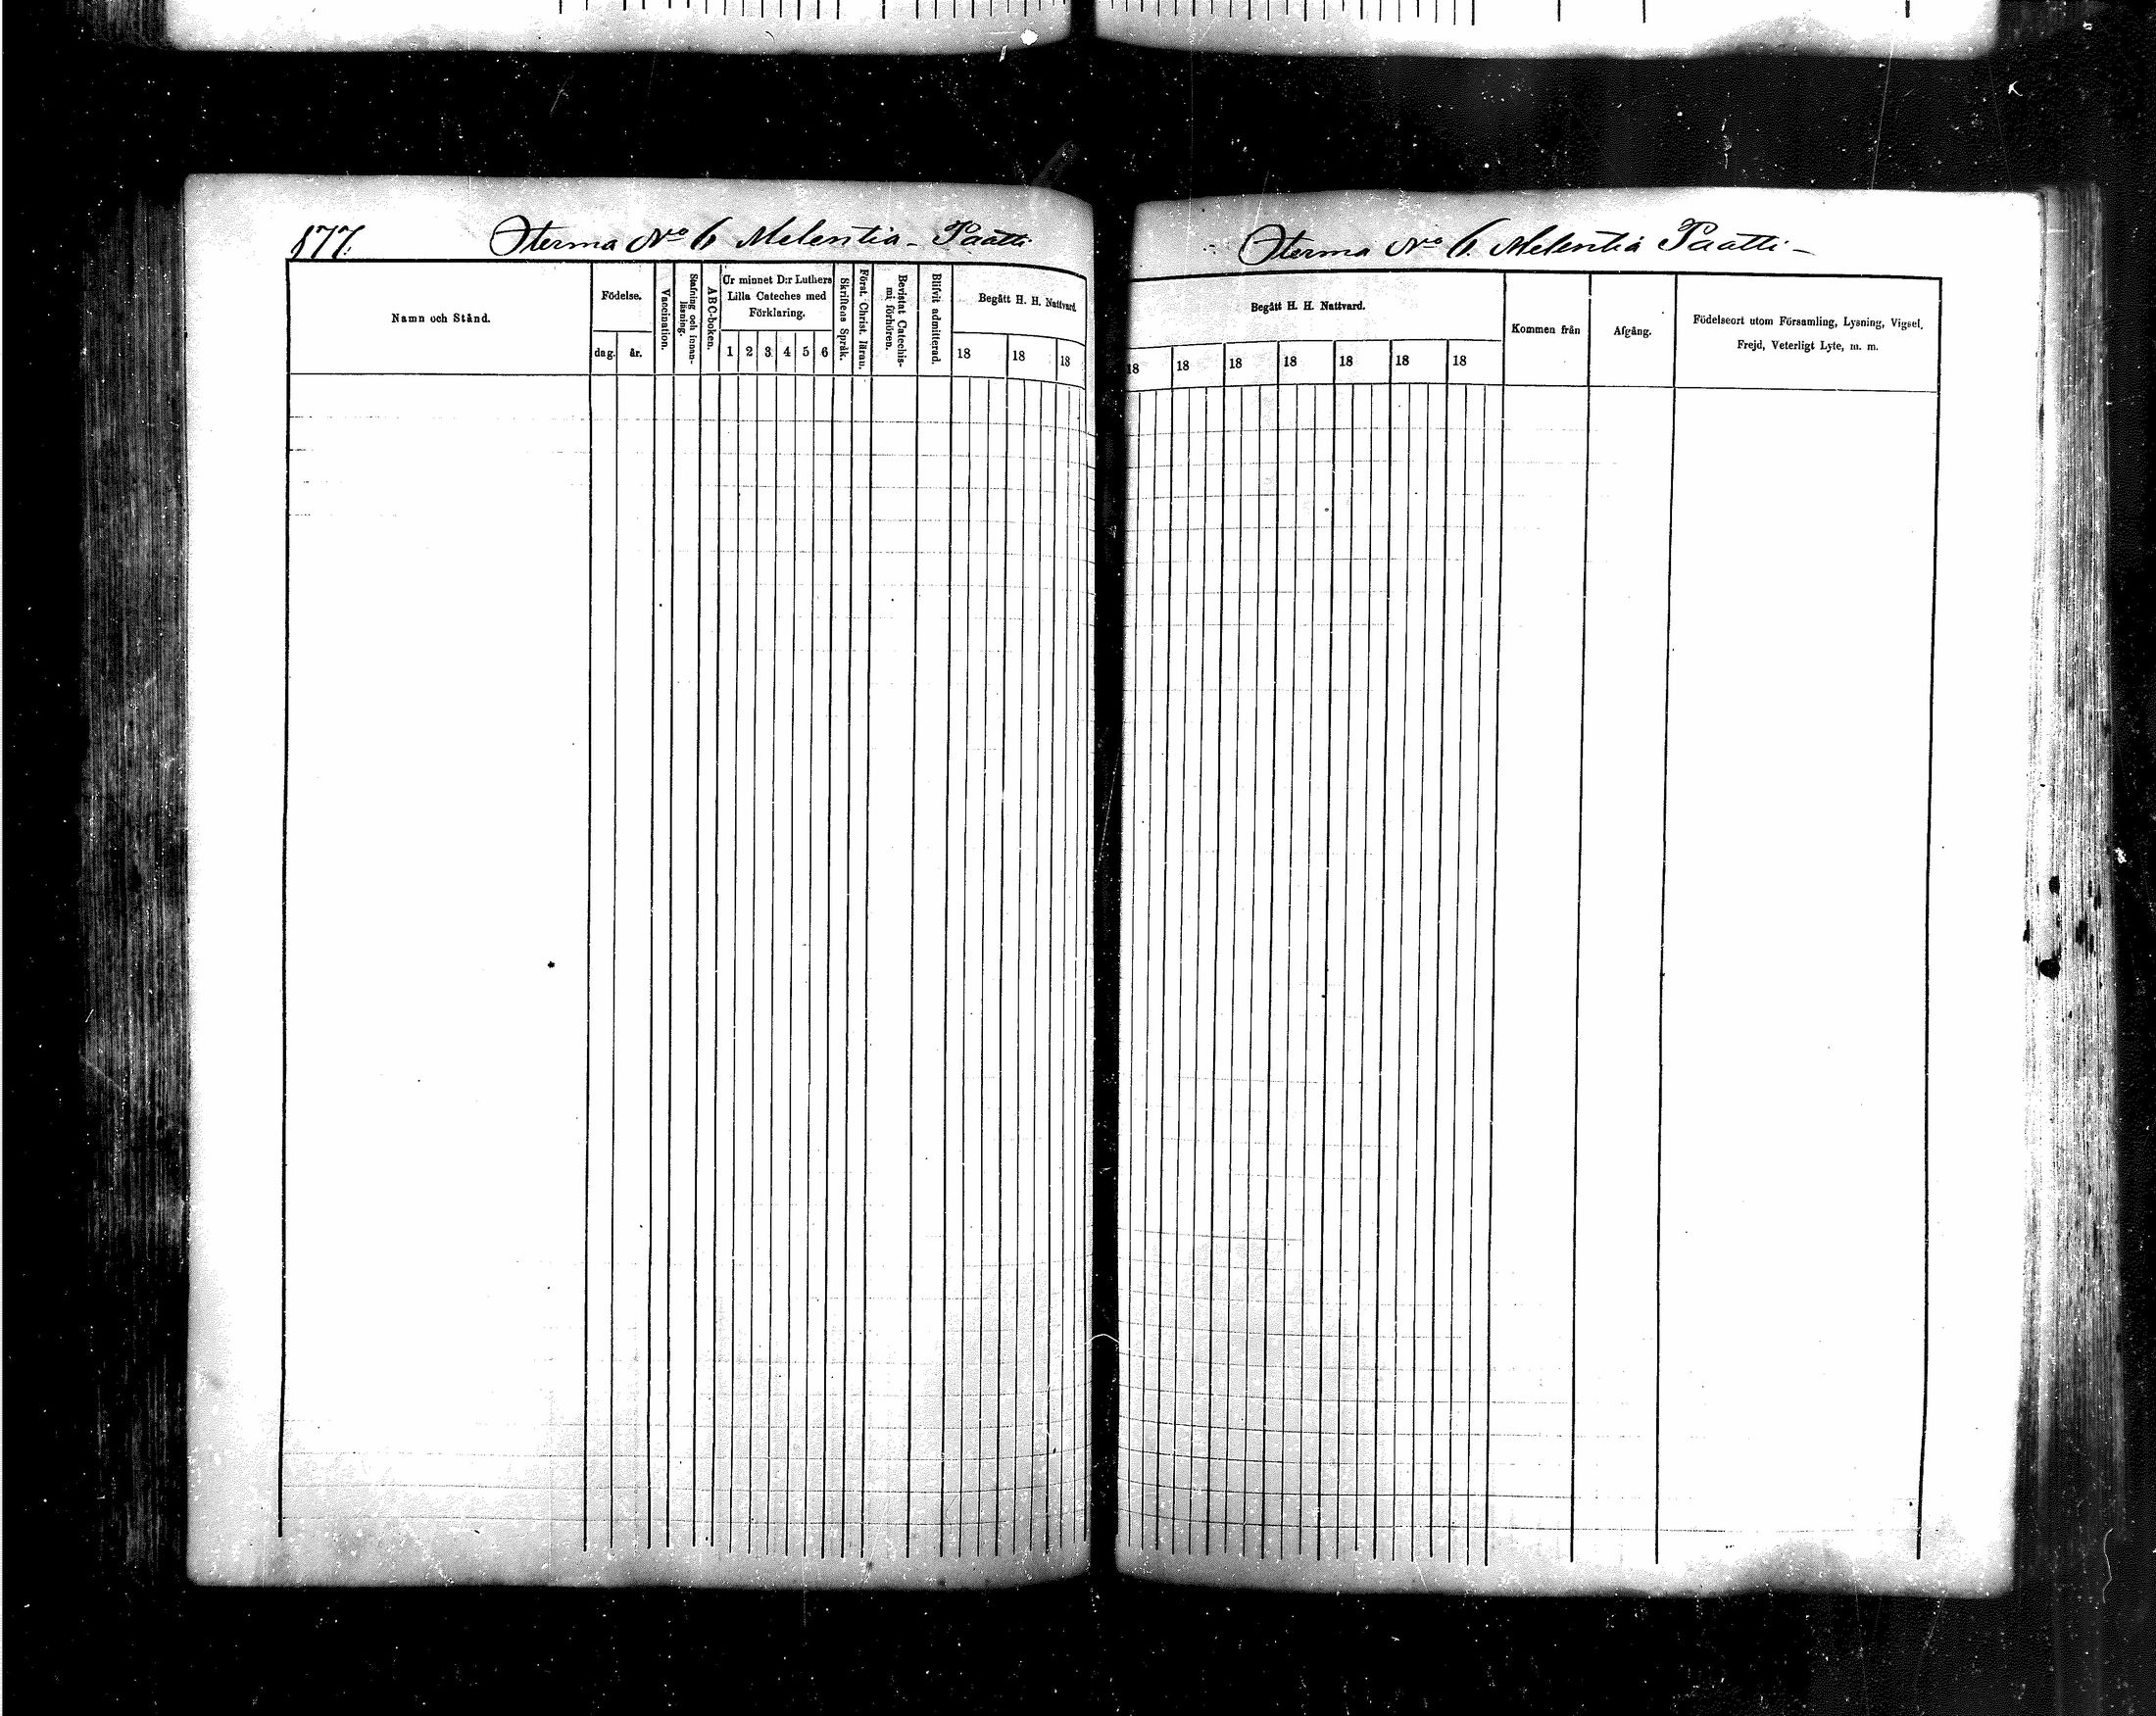 877. Sterma No 6 Melentiä - Paatti
Namn och Stånd.
Födelse.
dag.
år.
Vaccination.
Stafning och innan-
läsning.
ABC-boken.
Ur minnet D:r Luthers
Lilla Cateches med
Förklaring.
1 2 3 4 5 6
Skriftens Språk.
Först. Christ. läran.
Bevistat Catechis-
mi förhören.
Blifvit admitterad.
Begått H. H. Nattvard.
18 18 18
Sterma No 6. Melentiä Paatti -
Begått H. H. Nattvard.
18 18 18 18 18 18 18
Kommen från
Afgång.
Födelseort utom Församling, Lysning, Vigsel,
Frejd, Veterligt Lyte, m. m.